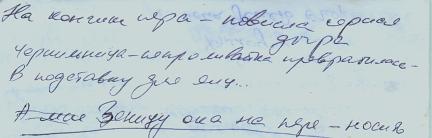 На кончик пера – повисла черная
дыра
Чернильница-непроливайка превратилась –
В подставку для яиц...
А мне Зеницу ока на пере – носить